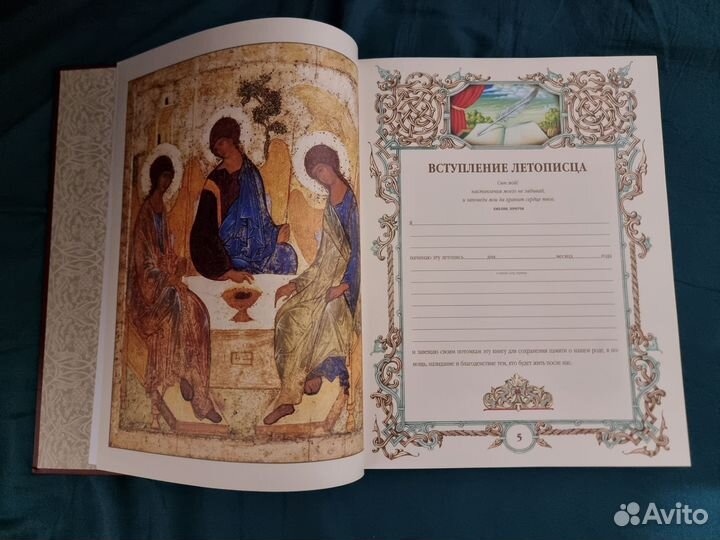 ВСТУПЛЕНИЕ ЛЕТОПИСЦА
Сын мой!
наставления моего не забывай,
и заповеди мои да хранит сердце твое.
Я
начинаю эту летопись дня месяца года
и завещаю своим потомкам эту книгу для сохранения памяти о нашем роде, в по-
мощь, назидание и благоденствие тем, кто будет жить после нас.
5
Avito